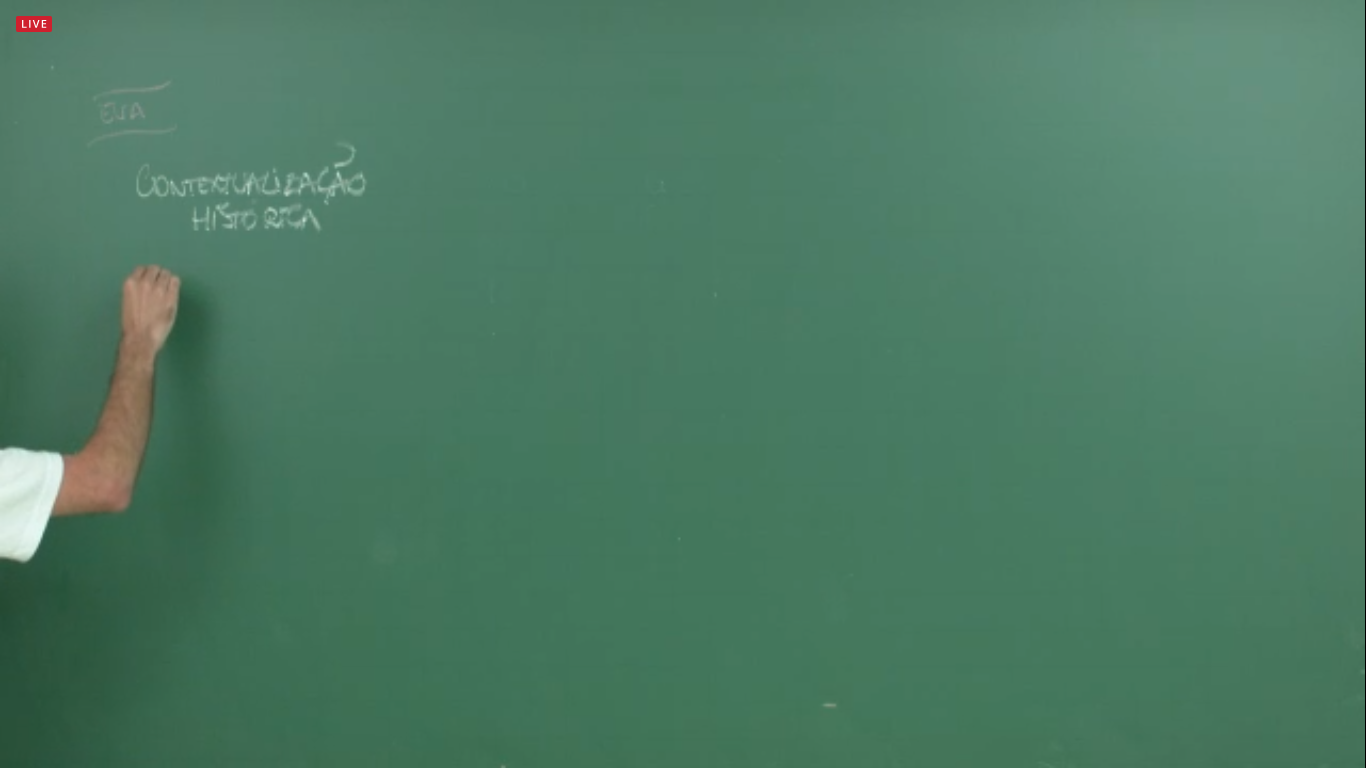 LIVE
EUA
CONTEXTUALIZAÇÃO
HISTÓRICA